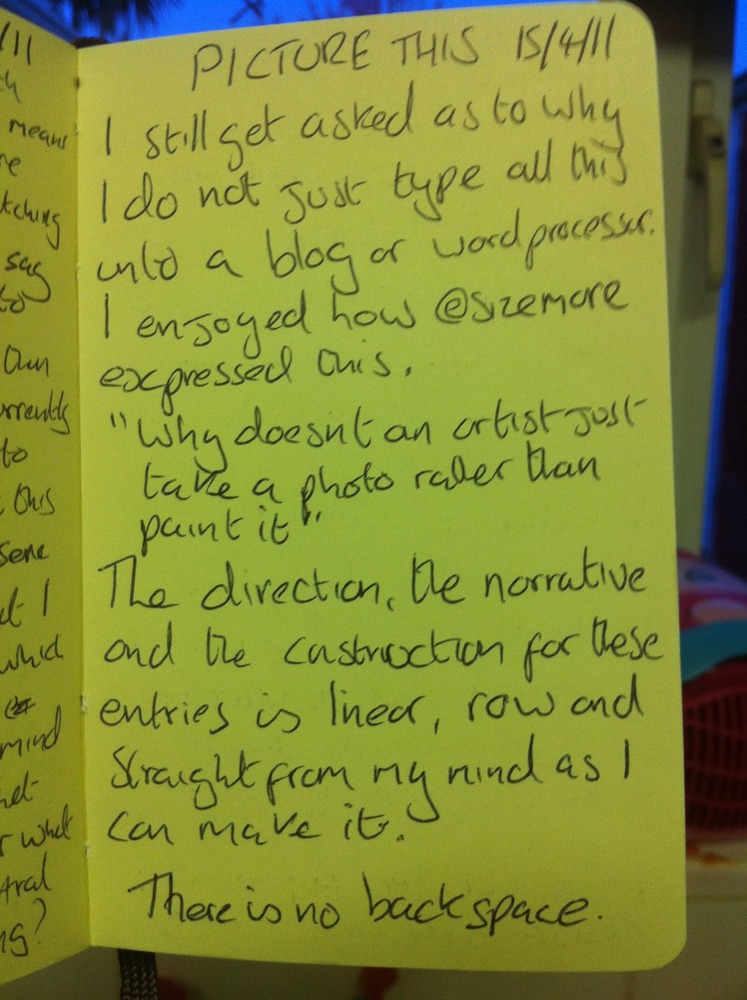 /11
means
re
tching
say
to
Own
urrently
to
this
Sene
t I
which
mind
r what
ng?
PICTURE THIS 15/4/11
I still get asked as to why
I do not just type all this
into a blog or word processor.
I enjoyed how @sizemore
expressed this.
"Why doesn't an artist just
take a photo rather than
paint it"
The direction, the narrative
and the construction for these
entries is linear, raw and
straight from my mind as I
can make it.
There is no backspace.